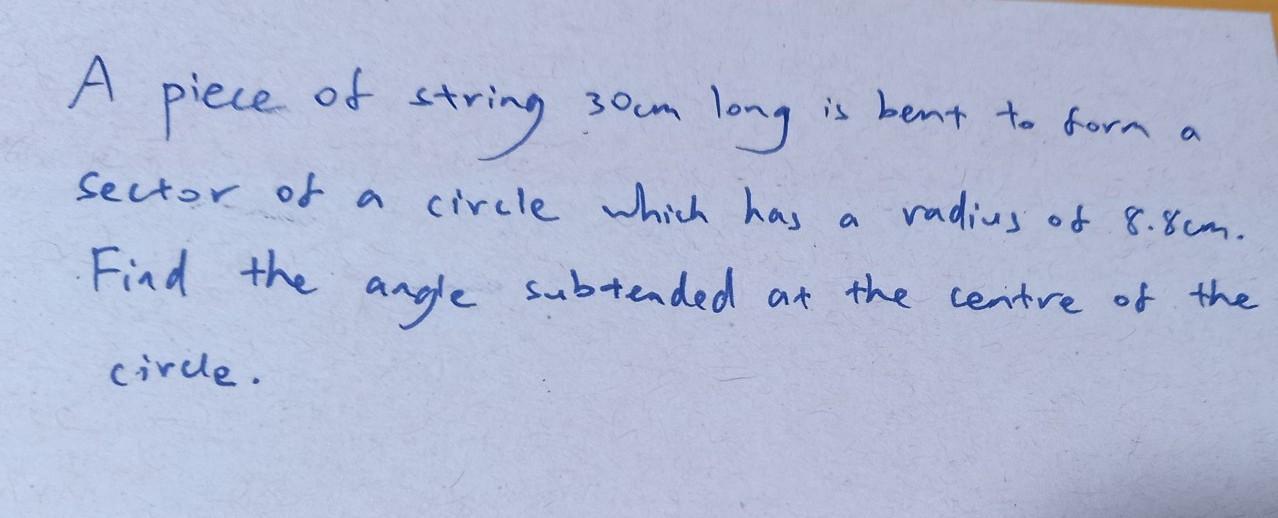 A piece of string 30cm long is bent to form a
sector of a circle which has a radius of 8.8cm.
Find the angle subtended at the centre of the
circle.